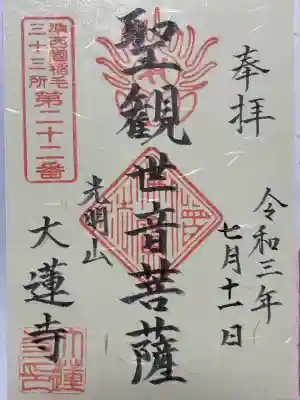 奉拝
令和三年
七月十一日
聖観世音菩薩
光明山
大蓮寺
準西國稲毛
三十三所
第二十二番